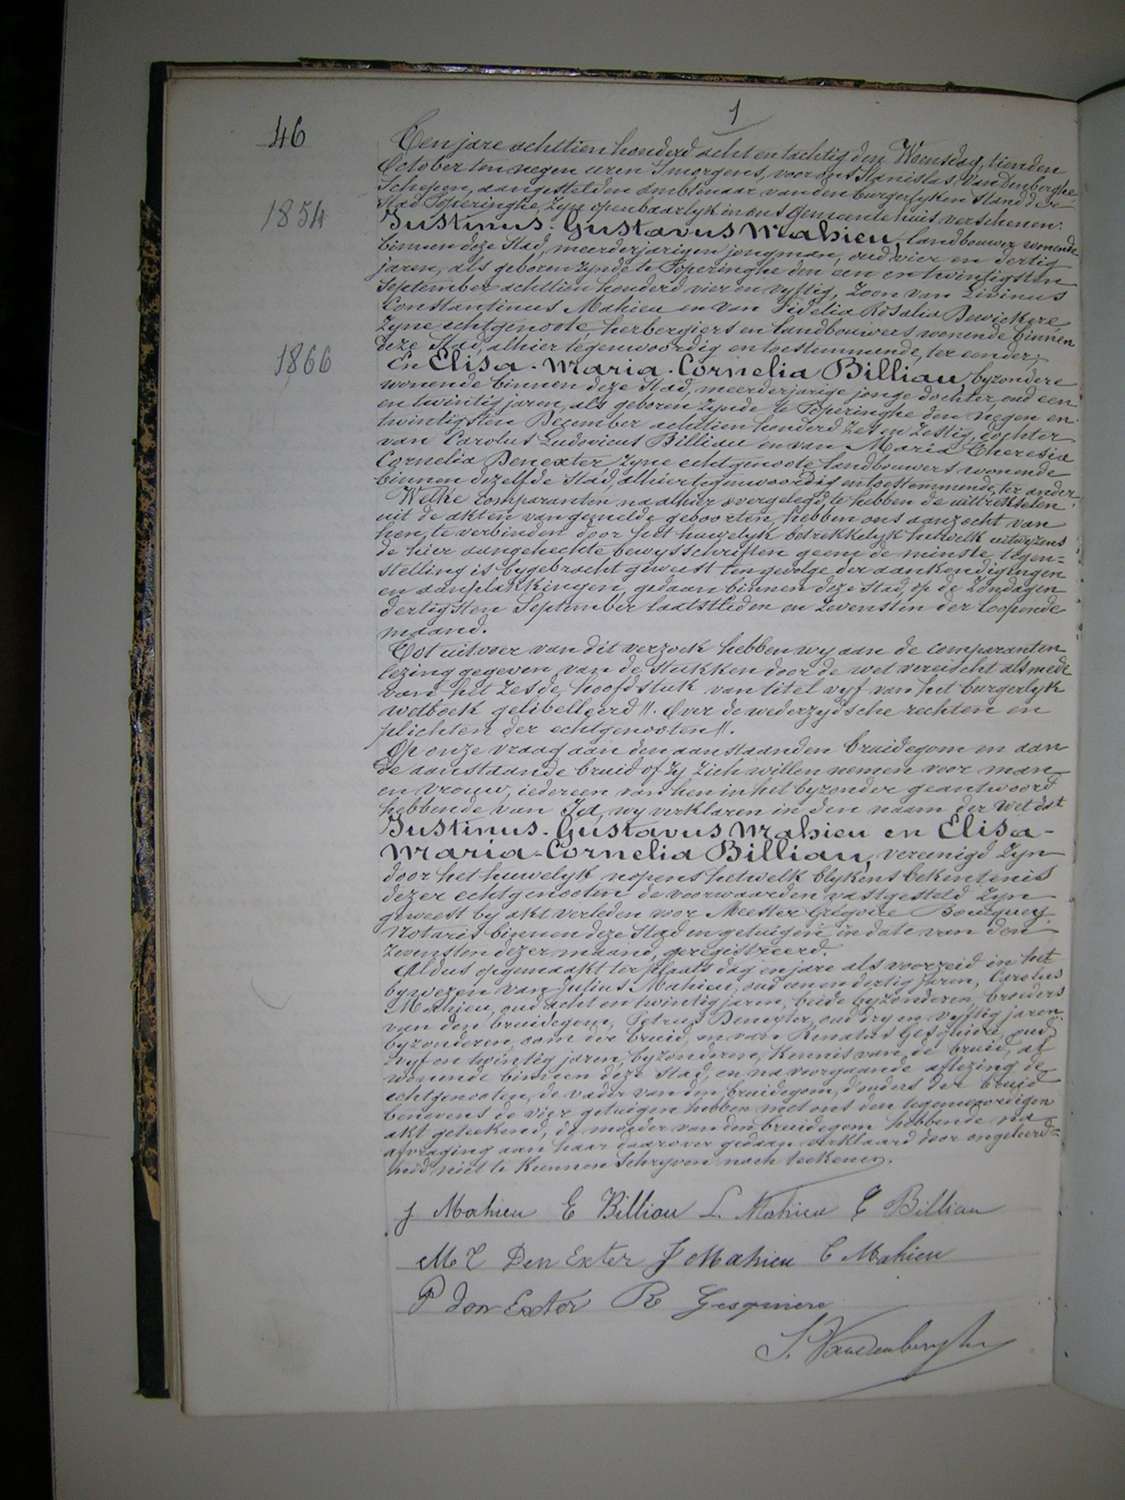 1
46
Ten jare achttien honderd acht en tachtig den Woensdag, tienden
October ten negen uren 's morgens, voor ons Stanislas Vandenberghe
Schepen, aangestelden ambtenaar van den burgerlyken stand der
stad Poperinghe, zyn openbaarlyk in ons gemeentehuis verschenen:
1854
Justinus-Gustavus Mahieu, landbouwer wonende
binnen deze stad, meerderjarigen jongman, oud vier en dertig
jaren, als geboren zynde te Poperinghe den een en twintigsten
September achttien honderd vier en vyftig, zoon van Livinus
Constantinus Mahieu en van Fidelia Rosalia Dewickere
zyne echtgenoote, herbergiers en landbouwers wonende binnen
deze stad, alhier tegenwoordig en toestemmende, ter eender;
1866
En Elisa-Maria-Cornelia Billiau, byzondere
wonende binnen deze stad, meerderjarige jonge dochter, oud een
en twintig jaren, als geboren zynde te Poperinghe den negen en
twintigsten December achttien honderd zes en zestig, dochter
van Carolus Ludovicus Billiau en van Maria Theresia
Cornelia Denexter zyne echtgenoote, landbouwers wonende
binnen dezelfde stad, alhier tegenwoordig en toestemmende, ter ander.
Welke comparanten na alhier overgelegd te hebben de uittrekselen
uit de akten van gemelde geboorten, hebben ons aanzocht van
hen te verbinden door het huwelyk betrekkelyk hetwelk uitwyzens
de hier aangehechte bewysschriften geene de minste tegen=
stelling is bygebracht geweest ten gevolge der aankondigingen
en aanplakkingen gedaan binnen deze stad, op de zondagen
dertigsten September laatstleden en zevensten der loopende
maand.
Tot uitvoer van dit verzoek hebben wy aan de comparanten
lezing gegeven van de stukken door de wet vereischt alsmede
van het zesde hoofdstuk van titel vyf van het burgerlyk
wetboek gelibelleerd ". Over de wederzydsche rechten en
plichten der echtgenooten ".
Op onze vraag aan den aanstaanden bruidegom en aan
de aanstaande bruid of zy zich willen nemen voor man
en vrouw, iedereen van hen in het byzonder geantwoord
hebbende van Ja, wy verklaren in den naam der wet dat
Justinus-Gustavus Mahieu en Elisa-
Maria-Cornelia Billiau, vereenigd zyn
door het huwelyk nopens hetwelk blykens bekentenis
dezer echtgenooten de voorwaarden vastgesteld zyn
geweest by akt verleden voor Meester Grégoire
Notaris binnen deze stad en getuigen in date van den
zevensten dezer maand, geregistreerd.
Aldus opgemaakt ter plaats dag en jare als voorzeid in het
bywezen van Julius Mahieu, oud een en dertig jaren, Carolus
Mahieu, oud acht en twintig jaren, beide byzonderen, broeders
van den bruidegom, Petrus Denexter, oud dry en vyftig jaren
byzonderen, oom der bruid, en van Renatus Gesquiere, oud
vyf en twintig jaren, byzonderen, kennis van de bruid, al
wonende binnen deze stad, en na voorgaande aflezing de
echtgenooten, de vader van den bruidegom, d'ouders der bruid
benevens de vier getuigen hebben met ons den tegenwoordigen
akt geteekend, de moeder van den bruidegom hebbende na
afvraging aan haar daarover gedaan verklaard door ongeleerd=
heid niet te kunnen schryven noch teekenen.
J Mahieu E Billiau L. Mahieu C Billiau
M T Den Exter J Mahieu C Mahieu
P den Exter R Gesquiere
S. Vandenberghe